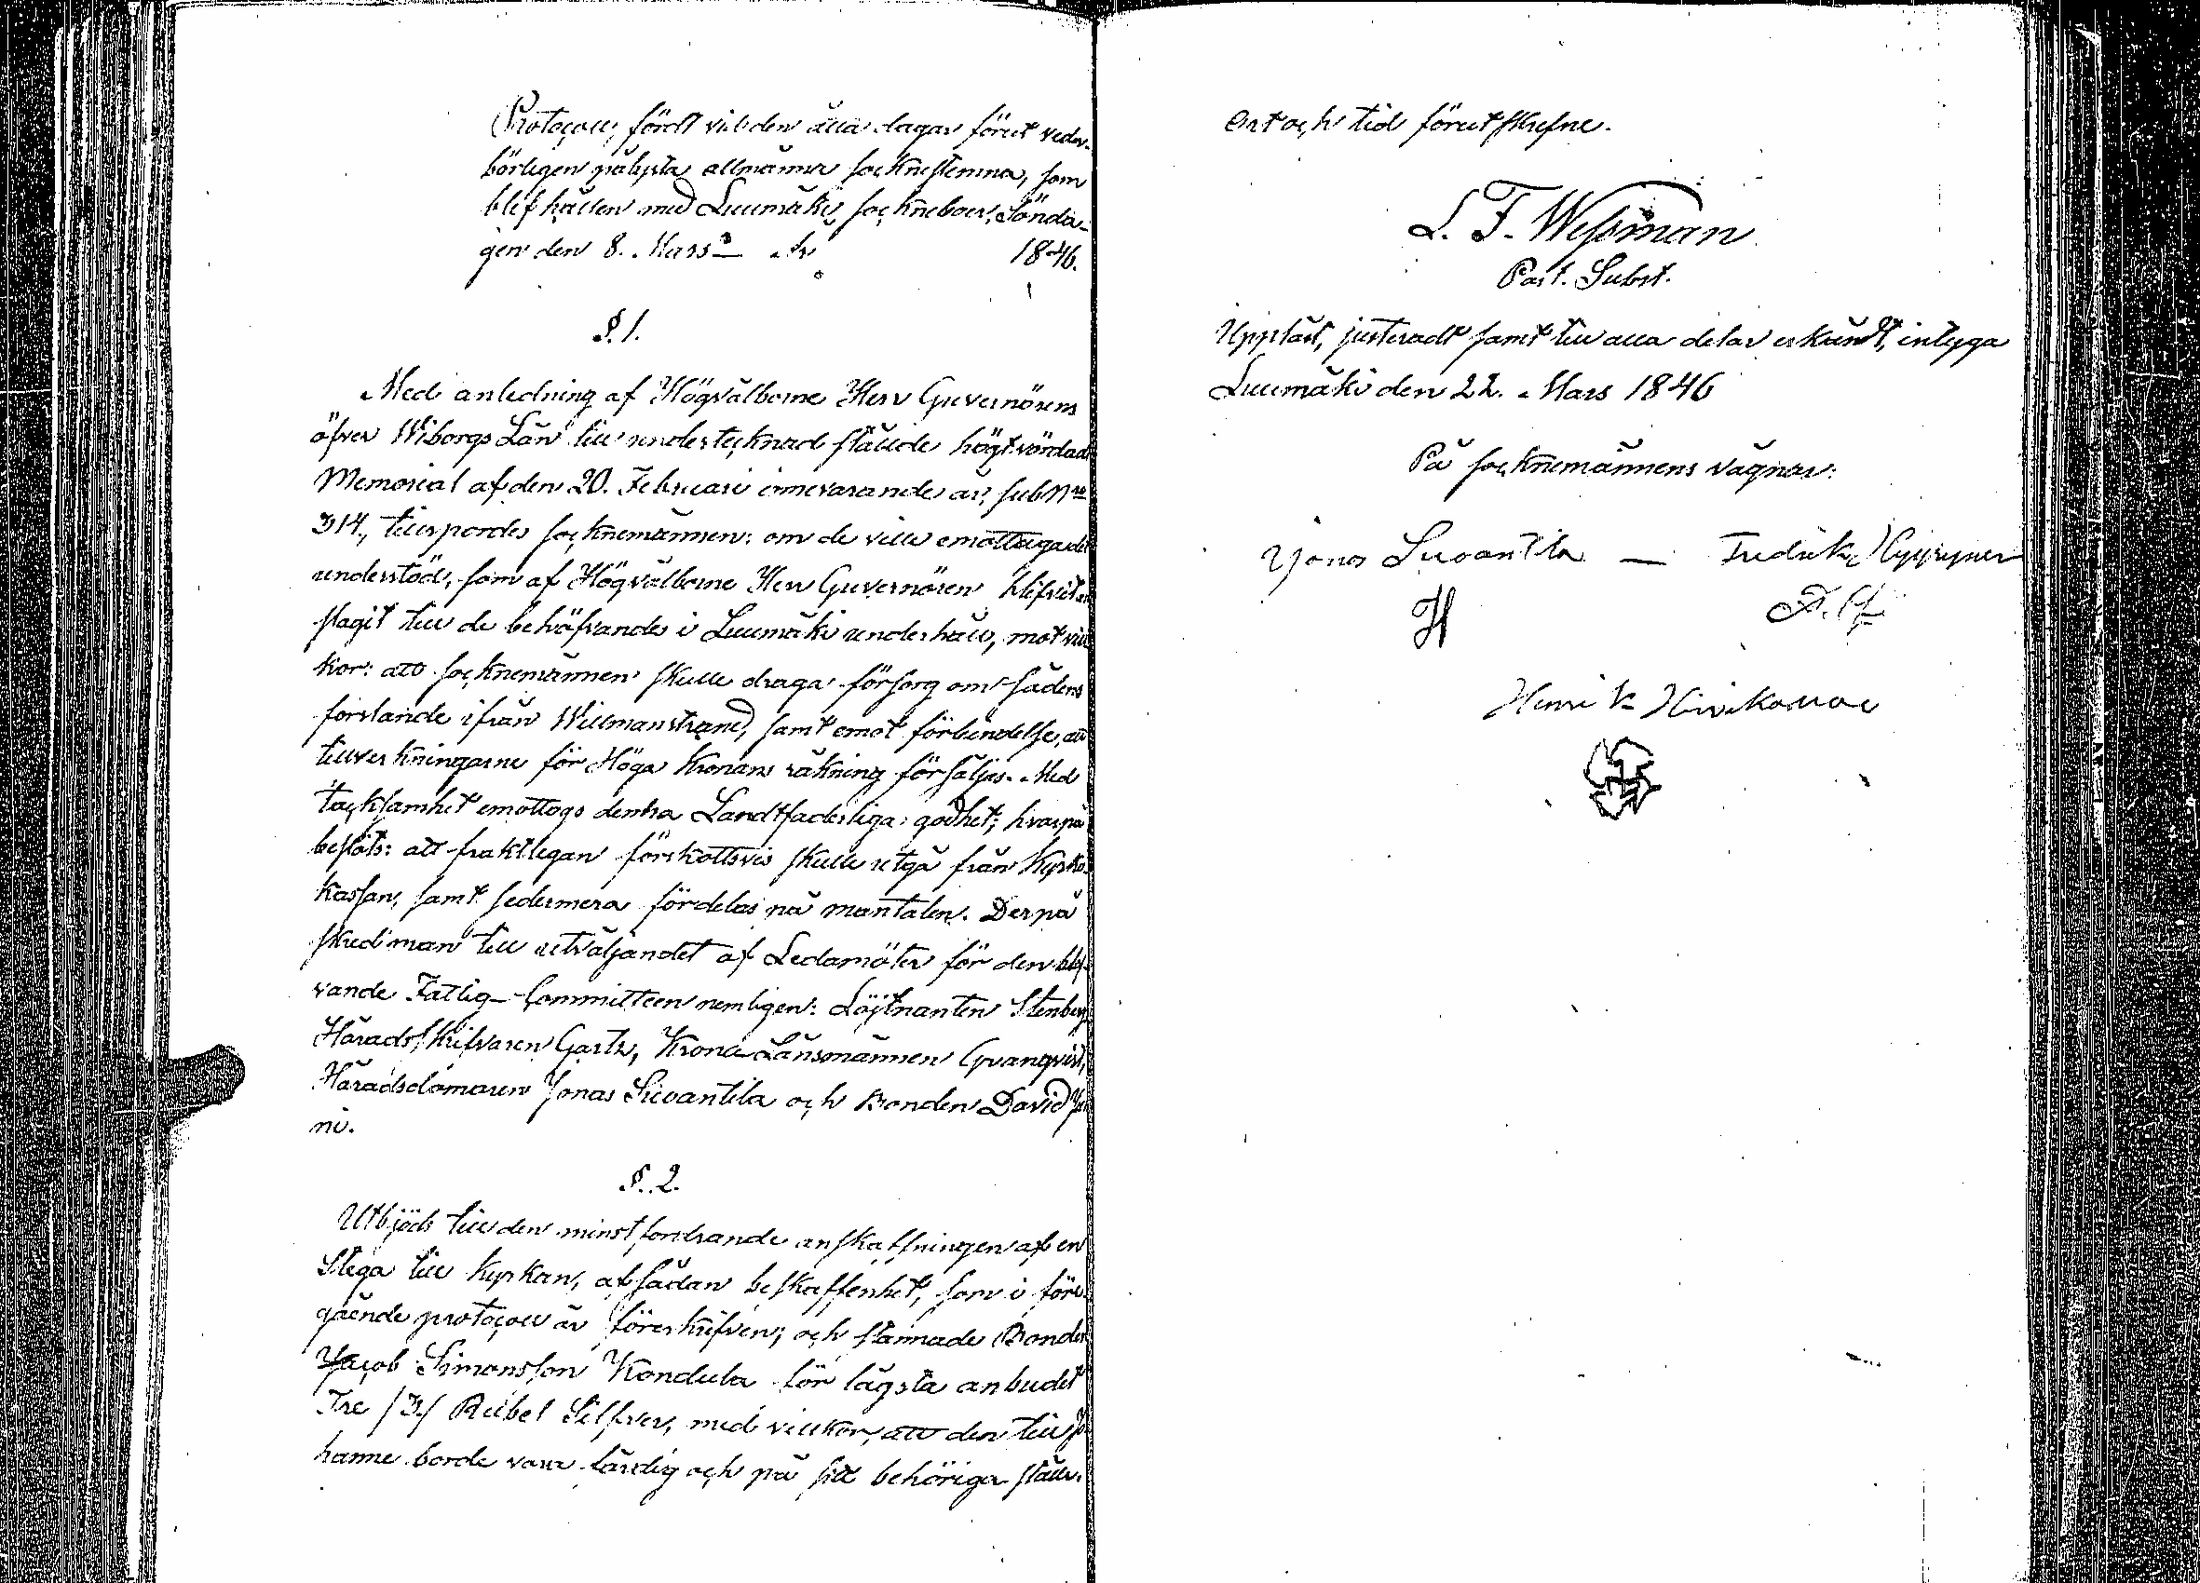 Protocoll, fördt vid den åtta dagar förut veder-
börligen pålysta allmänna socknestemma, som
blef hållen med Luumäki socknebоer, Sönda-
gen den 8. Mars 1846.
§. 1.
Med anledning af Högvälborne Herr Guvernörens
öfver Wiborgs Län till undertecknad stälde högtvördade
Memorial af den 20. Februari innevarande år, sub Nro
314, tillspordes socknemännen: om de ville emottaga det
understöd, som af Högvälborne Herr Guvernören blifvit an
slagit till de behöfvande i Luumäki underhåll, mot vill
kor: att socknemännen skulle draga försorg om sädens
forslande ifrån Willmanstrand, samt emot förbindelse, att
tillverkningarne för Höga Kronans räkning försäljes. Med
tacksamhet emottogs denna Landtfaderliga godhet; hvarpå
beslöts: att fraktlegan förskottsvis skulle utgå från Kyrko-
kassan, samt sedermera fördelas på mantalen. Derpå
skred man till utväljandet af Ledamöter för den blif-
vande Fattig-Committeen nemligen: Löjtnanten Stenberg,
Häradsskrifvaren Gartz, Krono Länsmannen Qvanqvist,
Häradsdomaren Jonas Suoantila och Bonden David
ni.
§. 2.
Utbjöds till den minstfordrande anskaffningen af en
Stega till kyrkan, af sådan beskaffenhet, som i före-
gående protocoll är föreskrifven; och stannade Bonden
Jacob Simonsson Kondula för lägsta anbudet
Tre /3./ Rubel Silfver, med villkor, att den till Jo
hanne borde vara färdig och på sitt behöriga ställe.
Ort och tid förutskrefne.
L. F. Wessman
Past. Subst.
Uppläst, justeradt samt till alla delar erkändt, intyga
Luumäki den 22. Mars 1846
På socknemännens vägnar:
Jonas Suoantila — Fredrik Hyyrynen
Henrik Hirvikallio